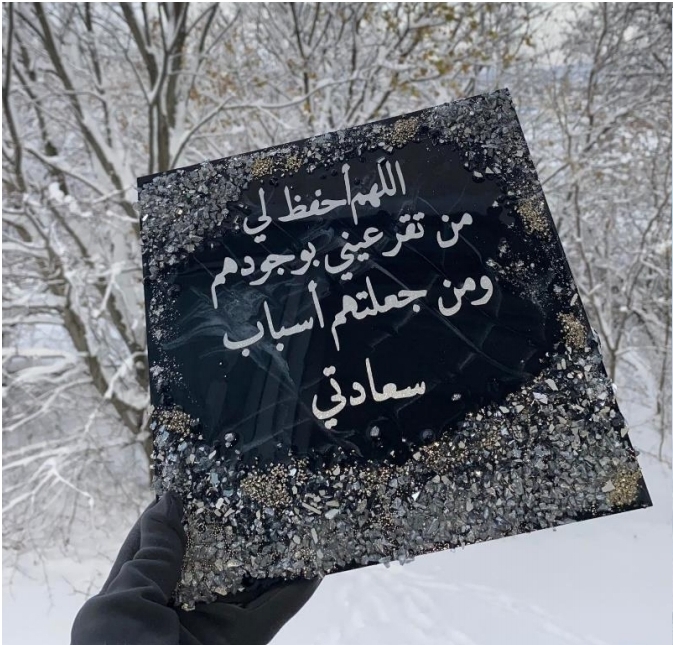 اللهم أحفظ لي
من تقر عيني بوجودهم
ومن جعلتهم أسباب
سعادتي